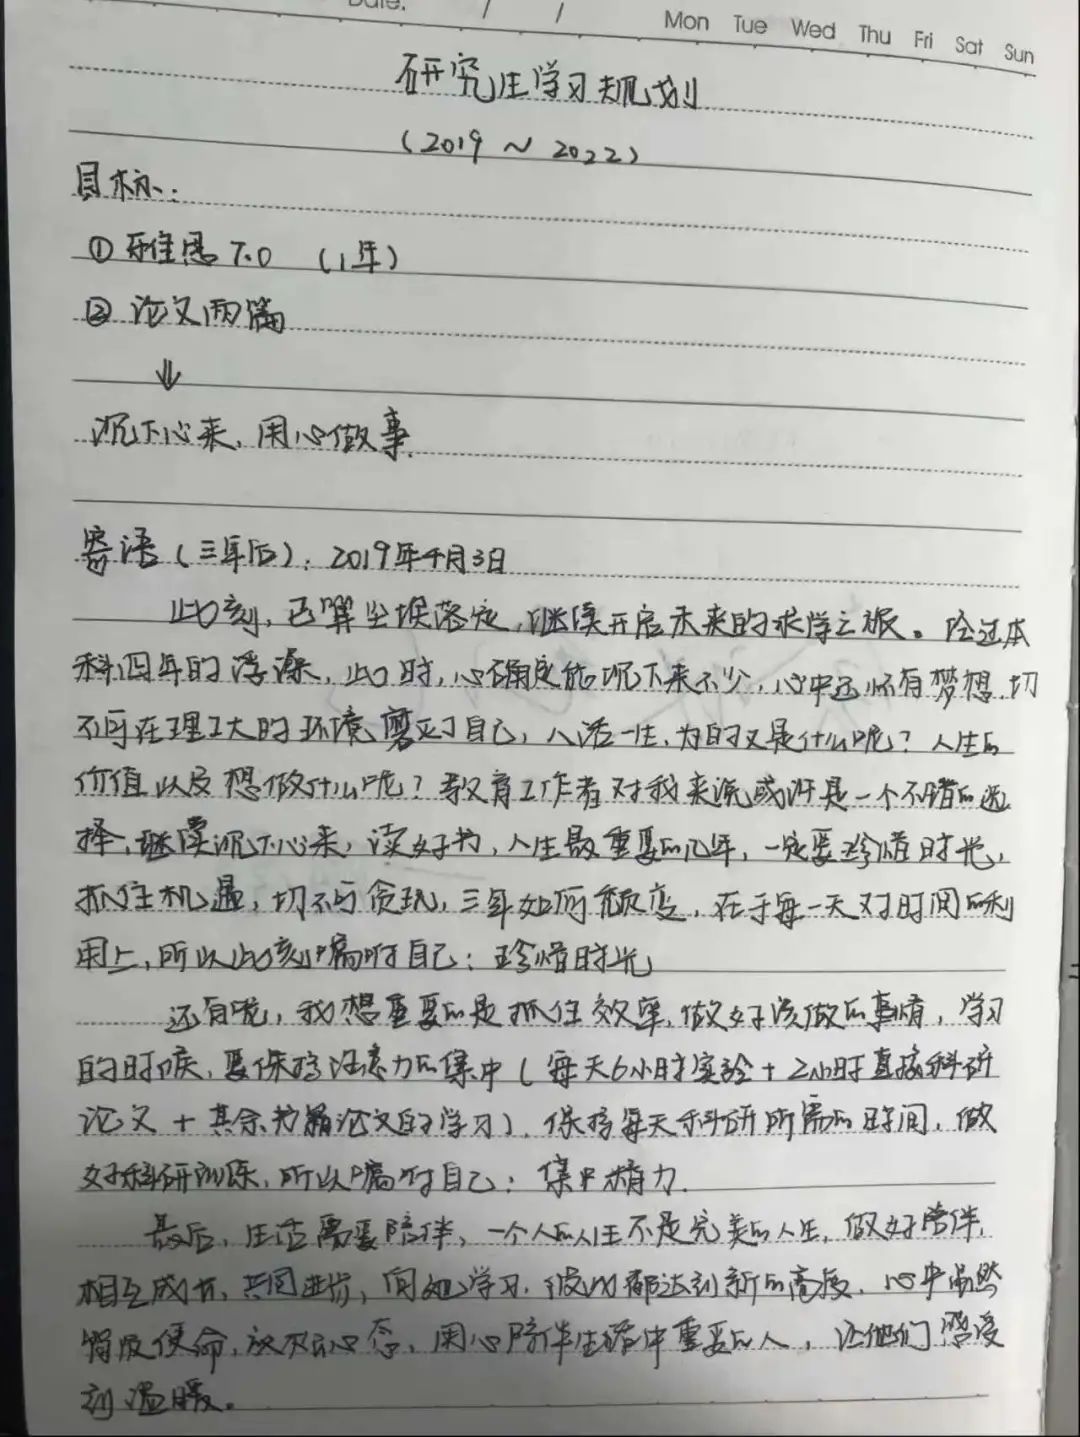 Date. / / Mon Tue Wed Thu Fri Sat Sun
研究生学习规划
(2019 ~ 2022)
目标:
① 雅思7.0 (1年)
② 论文两篇
⇓
沉下心来,用心做事.
寄语(三年后): 2019年4月3日
此刻,已算尘埃落定,继续开启未来的求学之旅。经过本
科四年的浮漂,此时,心确定能沉下来不少,心中还怀有梦想,切
不可在理工大的环境磨灭了自己,人活一生,为的又是什么呢?人生的
价值以及想做什么呢?教育工作者对我来说或许是一个不错的选
择,继续沉下心来,读好书,人生最重要的几年,一定要珍惜时光,
抓住机遇,切不可贪玩,三年如何蜕变,在于每一天对时间的利
用上,所以此刻嘱咐自己:珍惜时光
还有呢,我想重要的是抓住效率,做好该做的事情,学习
的时候,要保持注意力的集中(每天6小时实验+2小时直接科研
论文+其余为论文的学习),保持每天科研所需的时间,做
好科研训练,所以嘱咐自己:集中精力.
最后,生活需要陪伴,一个人的人生不是完美的人生,做好陪伴,
相互成长,共同进步,向她学习,彼此都达到新的高度,心中虽然
肩使命,放不心态,用心陪伴生活中重要的人,让他们感受
到温暖。